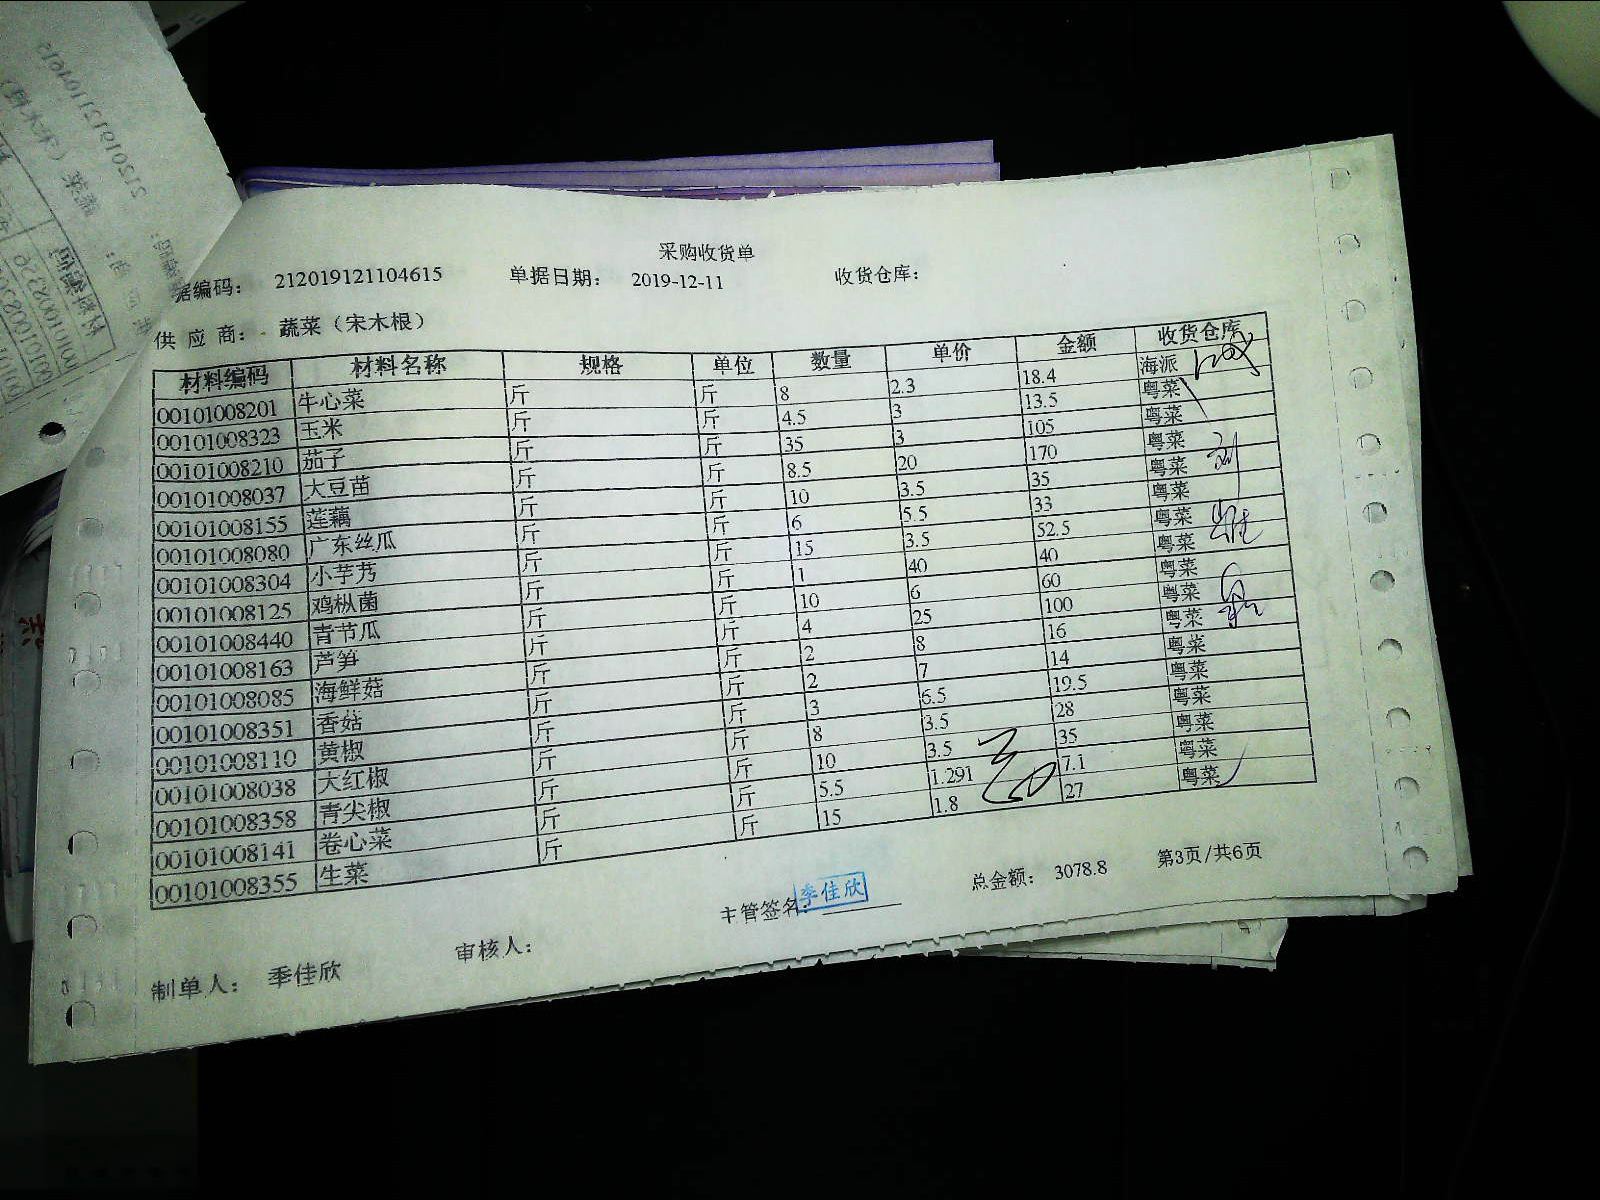 采购收货单
据编码： 212019121104615 单据日期： 2019-12-11 收货仓库：
供 应 商： 蔬菜（宋木根）
材料编码 材料名称 规格 单位 数量 单价 金额 收货仓库
00101008201 牛心菜 斤 斤 8 2.3 18.4 海派
00101008323 玉米 斤 斤 4.5 3 13.5 粤菜
00101008210 茄子 斤 斤 35 3 105 粤菜
00101008037 大豆苗 斤 斤 8.5 20 170 粤菜
00101008155 莲藕 斤 斤 10 3.5 35 粤菜
00101008080 广东丝瓜 斤 斤 6 5.5 33 粤菜
00101008304 小芋艿 斤 斤 15 3.5 52.5 粤菜
00101008125 鸡枞菌 斤 斤 1 40 40 粤菜
00101008440 青节瓜 斤 斤 10 6 60 粤菜
00101008163 芦笋 斤 斤 4 25 100 粤菜
00101008085 海鲜菇 斤 斤 2 8 16 粤菜
00101008351 香菇 斤 斤 2 7 14 粤菜
00101008110 黄椒 斤 斤 3 6.5 19.5 粤菜
00101008038 大红椒 斤 斤 8 3.5 28 粤菜
00101008358 青尖椒 斤 斤 10 3.5 35 粤菜
00101008141 卷心菜 斤 斤 5.5 1.291 7.1 粤菜
00101008355 生菜 斤 斤 15 1.8 27 粤菜
主管签名： 季佳欣 总金额： 3078.8 第3页/共6页
制单人： 季佳欣 审核人：